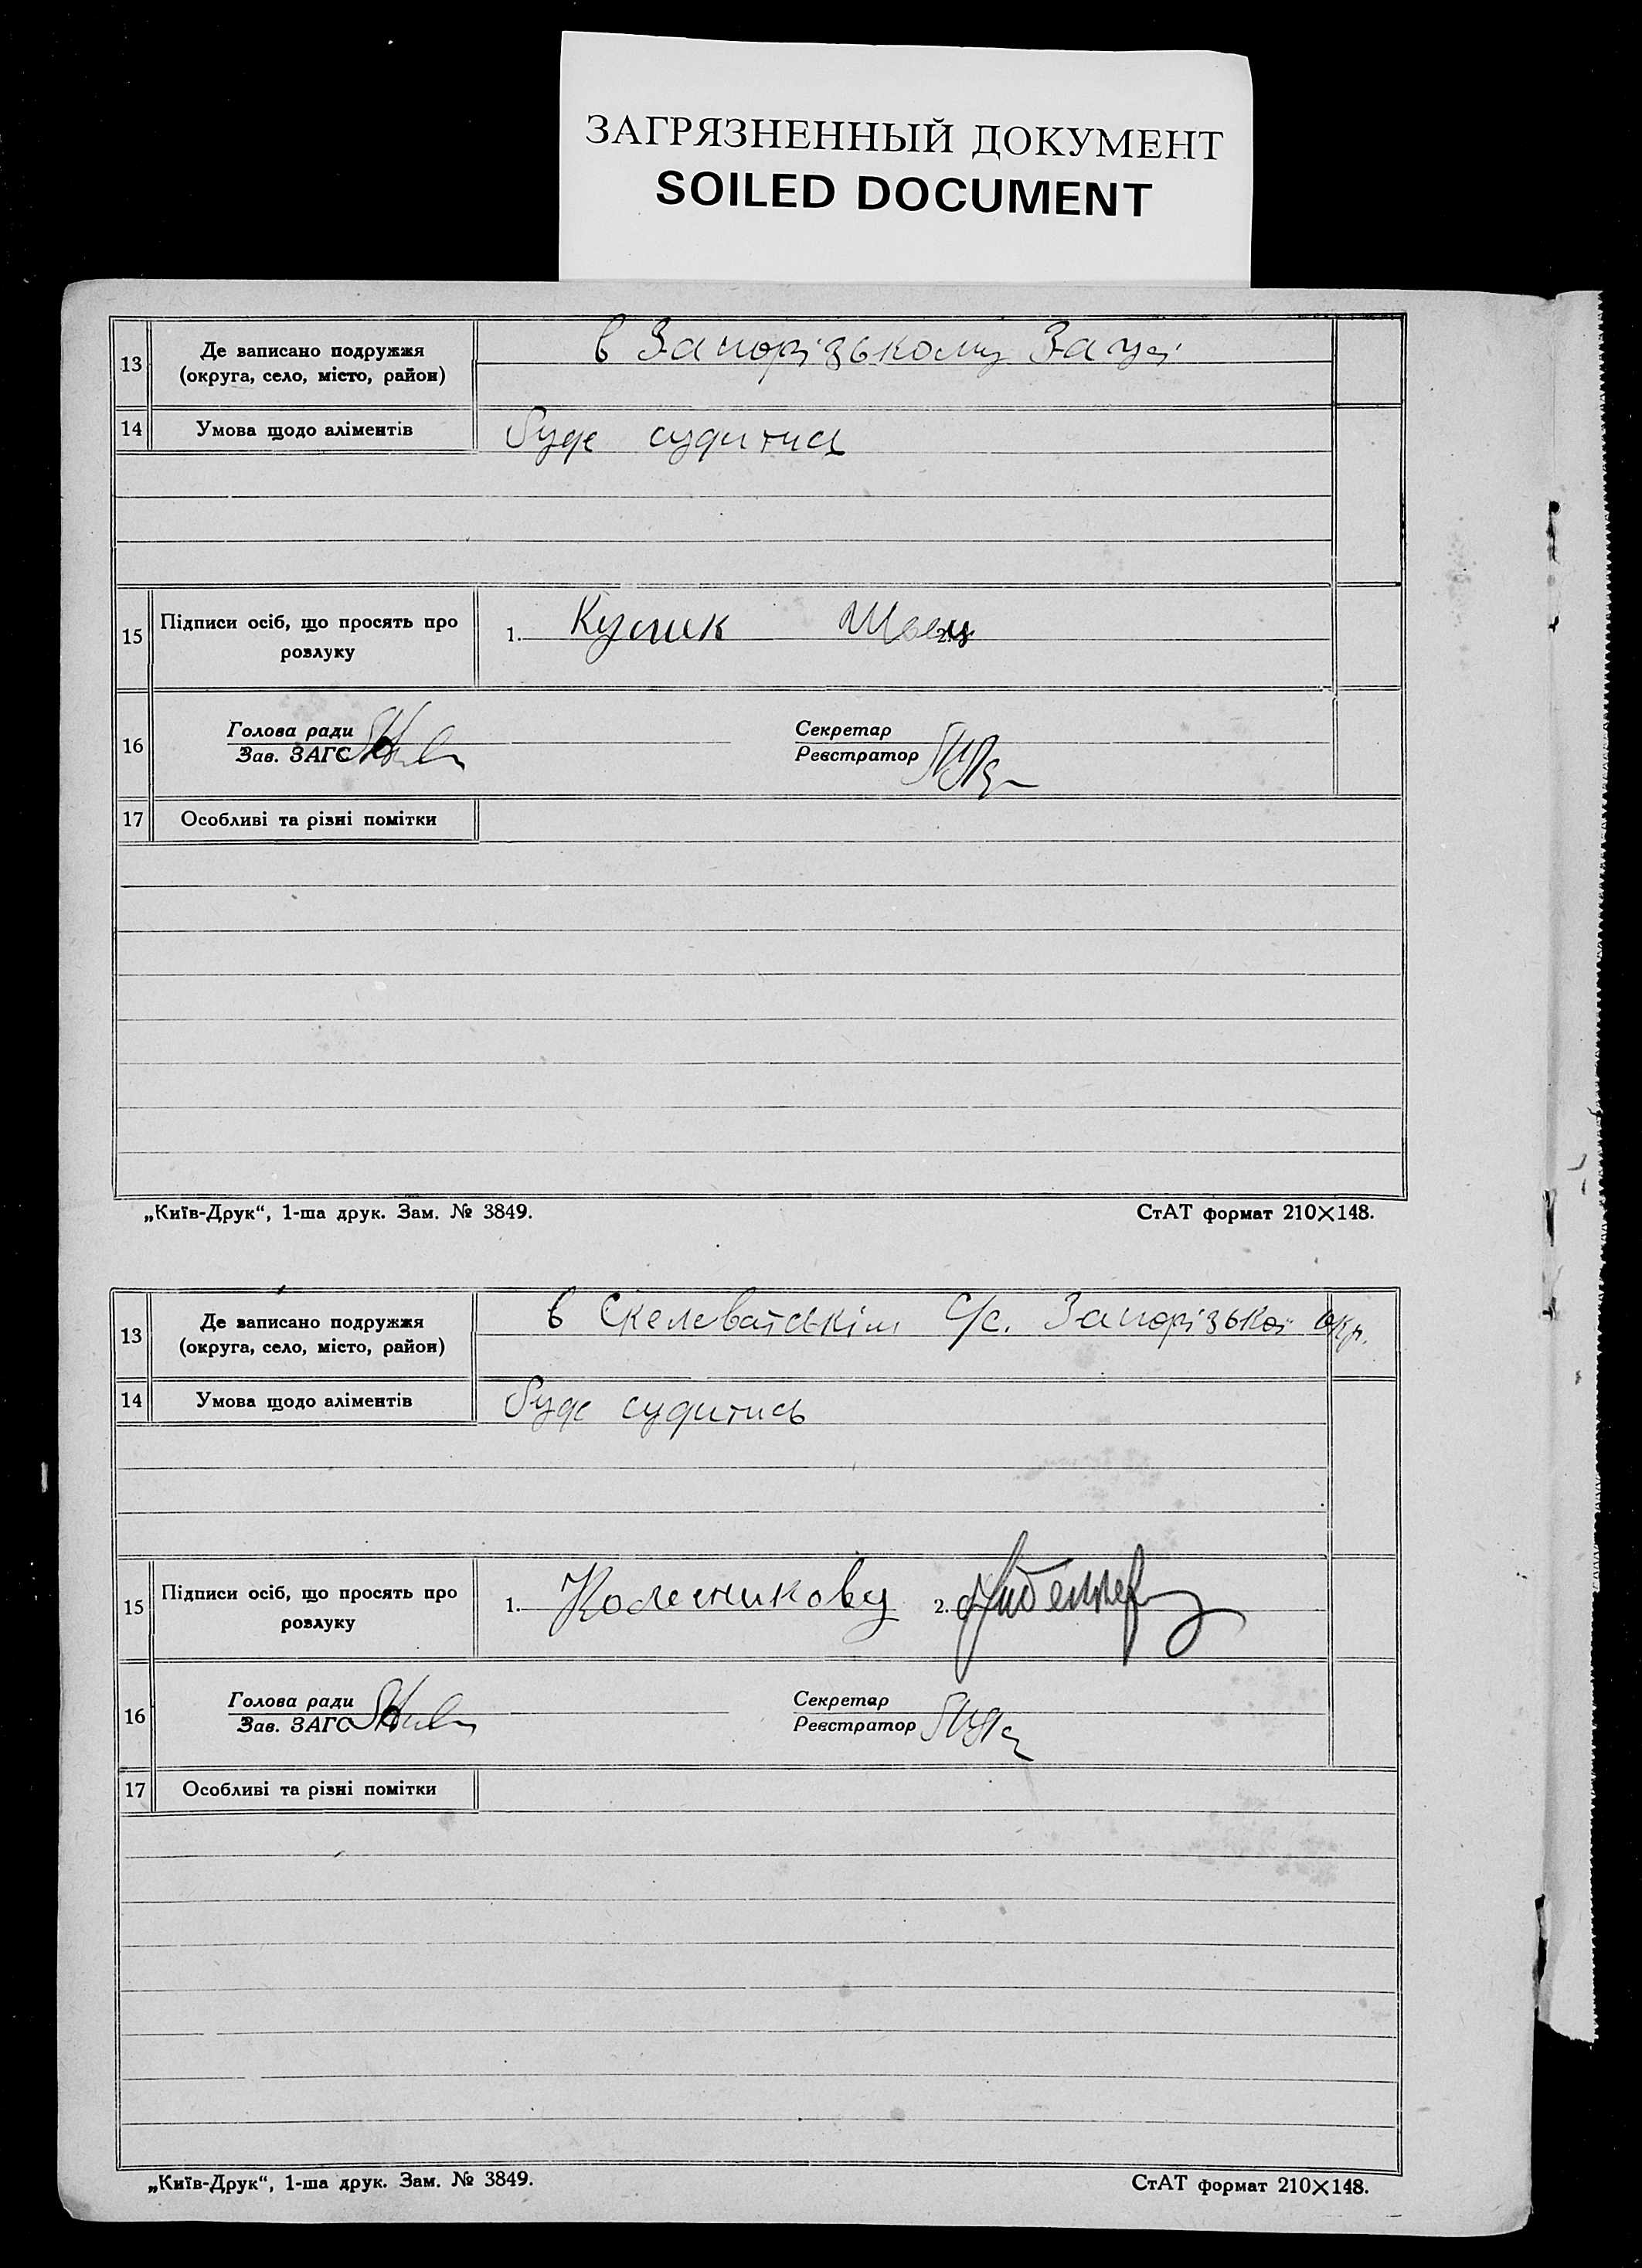 ЗАГРЯЗНЕННЫЙ ДОКУМЕНТ
SOILED DOCUMENT
13 Де записано подружжя в Запорізькому Загсі
(округа, село, місто, район)
14 Умова щодо аліментів буде судитись
15 Підписи осіб, що просять про
розлуку 1. Кулик Швец 2.
16 Голова ради Секретар
Зав. ЗАГС Реєстратор
17 Особливі та різні помітки
„Київ-Друк“, 1-ша друк. Зам. № 3849. СтАТ формат 210×148.
13 Де записано подружжя в Скелеватськім С/с. Запорізької окр.
(округа, село, місто, район)
14 Умова щодо аліментів буде судитись
15 Підписи осіб, що просять про
розлуку 1. 2.
16 Голова ради Секретар
Зав. ЗАГС Реєстратор
17 Особливі та різні помітки
„Київ-Друк“, 1-ша друк. Зам. № 3849. СтАТ формат 210×148.